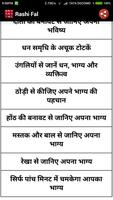 Rashi Fal
दांतों की बनावट से जानिए अपना
भविष्य
धन समृधि के अचूक टोटकें
उंगलियों से जानें धन, भाग्य और
व्यक्तित्व
ठोड़ी से कीजिए अपने भाग्य की
पहचान
होंठ की बनावट से जानिए अपना
भाग्य
मस्तक और बाल से जानिए अपना
भाग्य
रेखा से जानिए अपना भाग्य
सिर्फ पांच मिनट में चमकेगा आपका
भाग्य